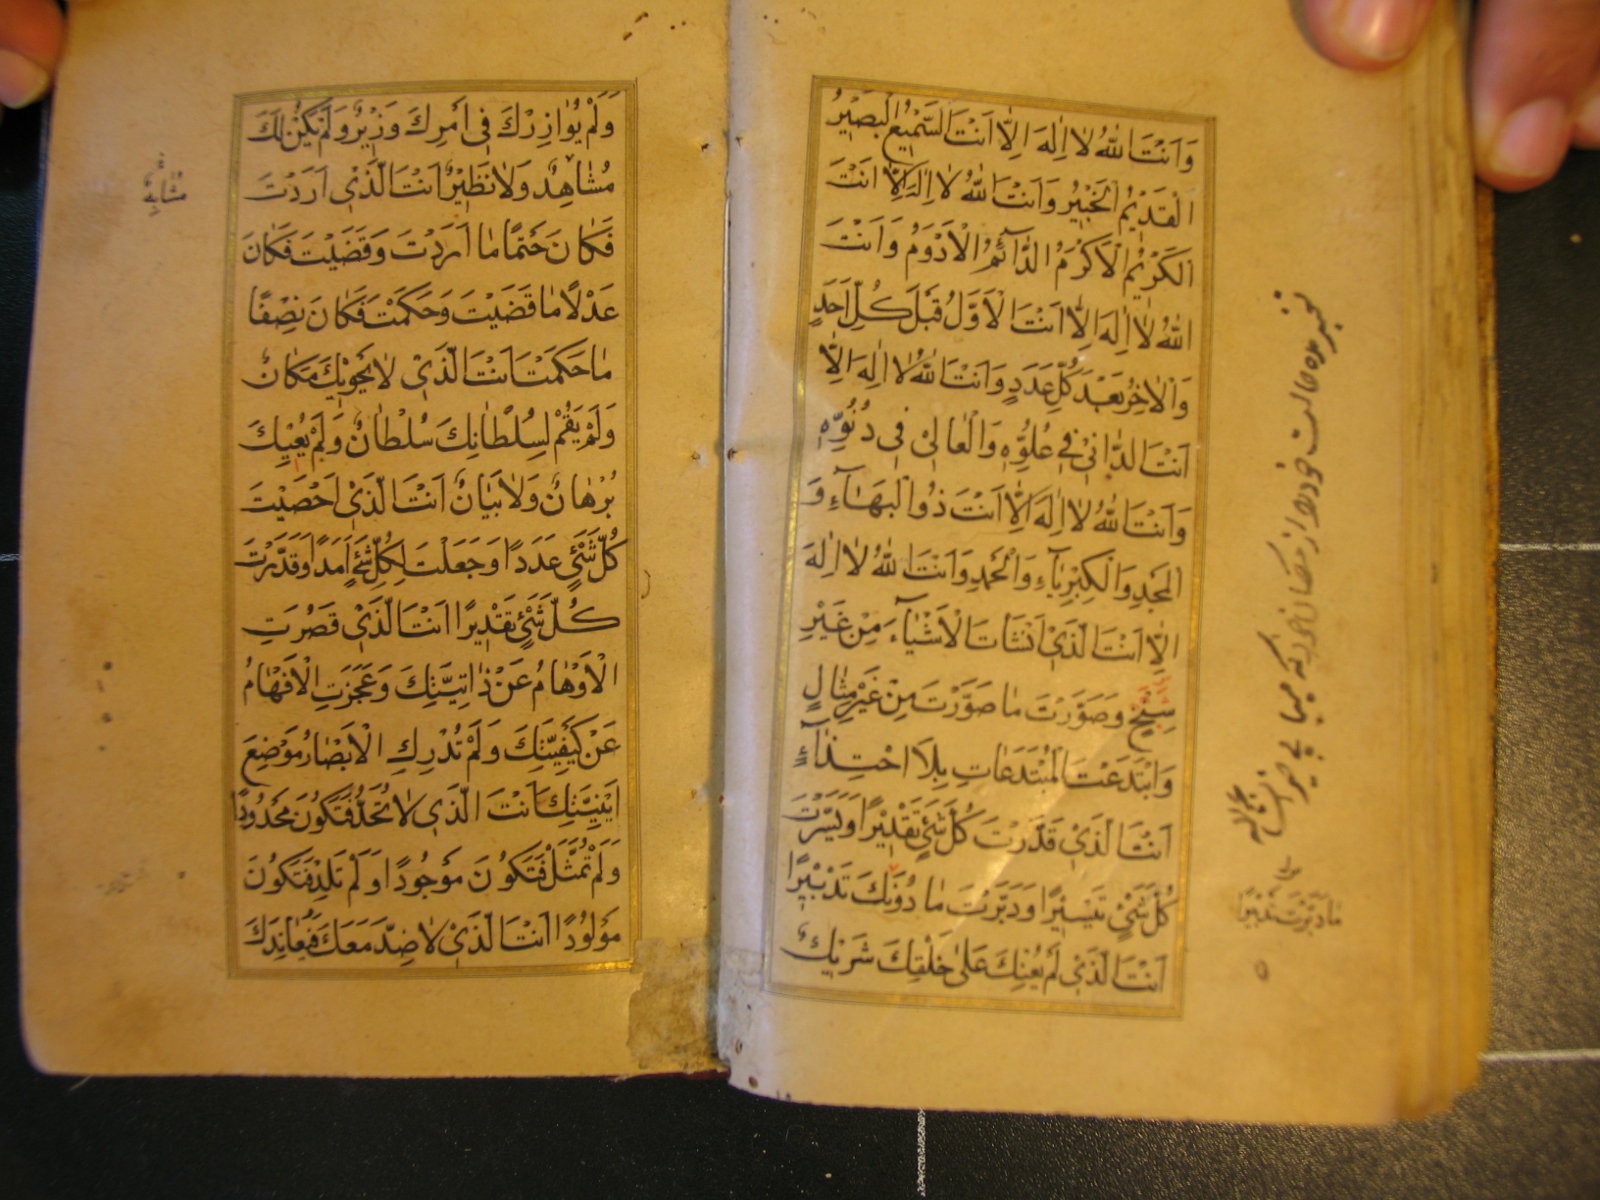 وَاَنْتَ اللهُ لَا اِلٰهَ اِلَّا اَنْتَ السَّمِيْعُ الْبَصِيْرُ
الْقَدِيْمُ الْخَبِيْرُ وَاَنْتَ اللهُ لَا اِلٰهَ اِلَّا اَنْتَ
الْكَرِيْمُ الْاَكْرَمُ الدَّآئِمُ الْاَدْوَمُ وَاَنْتَ
اللهُ لَا اِلٰهَ اِلَّا اَنْتَ الْاَوَّلُ قَبْلَ كُلِّ اَحَدٍ
وَالْاٰخِرُ بَعْدَ كُلِّ عَدَدٍ وَاَنْتَ اللهُ لَا اِلٰهَ اِلَّا
اَنْتَ الدَّانِيْ فِيْ عُلُوِّهٖ وَالْعَالِيْ فِيْ دُنُوِّهٖ
وَاَنْتَ اللهُ لَا اِلٰهَ اِلَّا اَنْتَ ذُو الْبَهَآءِ وَ
الْمَجْدِ وَالْكِبْرِيَآءِ وَالْحَمْدِ وَاَنْتَ اللهُ لَا اِلٰهَ
اِلَّا اَنْتَ الَّذِيْ اَنْشَاْتَ الْاَشْيَآءَ مِنْ غَيْرِ
سِنْخٍ وَصَوَّرْتَ مَا صَوَّرْتَ مِنْ غَيْرِ مِثَالٍ
وَابْتَدَعْتَ الْمُبْتَدَعَاتِ بِلَا احْتِذَآءٍ
اَنْتَ الَّذِيْ قَدَّرْتَ كُلَّ شَيْءٍ تَقْدِيْرًا وَيَسَّرْتَ
كُلَّ شَيْءٍ تَيْسِيْرًا وَدَبَّرْتَ مَا دُوْنَكَ تَدْبِيْرًا
اَنْتَ الَّذِيْ لَمْ يُعِنْكَ عَلٰى خَلْقِكَ شَرِيْكٌ
مَا دَبَّرْتَ تَدْبِيْرًا
وَلَمْ يُوَازِرْكَ فِيْ اَمْرِكَ وَزِيْرٌ وَلَمْ يَكُنْ لَكَ
مُشَاهِدٌ وَلَا نَظِيْرٌ اَنْتَ الَّذِيْ اَرَدْتَ
فَكَانَ حَتْمًا مَا اَرَدْتَ وَقَضَيْتَ فَكَانَ
عَدْلًا مَا قَضَيْتَ وَحَكَمْتَ فَكَانَ نِصْفًا
مَا حَكَمْتَ اَنْتَ الَّذِيْ لَا يَحْوِيْكَ مَكَانٌ
وَلَمْ يَقُمْ لِسُلْطَانِكَ سُلْطَانٌ وَلَمْ يُعْيِكَ
بُرْهَانٌ وَلَا بَيَانٌ اَنْتَ الَّذِيْ اَحْصَيْتَ
كُلَّ شَيْءٍ عَدَدًا وَجَعَلْتَ لِكُلِّ شَيْءٍ اَمَدًا وَقَدَّرْتَ
كُلَّ شَيْءٍ تَقْدِيْرًا اَنْتَ الَّذِيْ قَصُرَتِ
الْاَوْهَامُ عَنْ ذَاتِيَّتِكَ وَعَجَزَتِ الْاَفْهَامُ
عَنْ كَيْفِيَّتِكَ وَلَمْ تُدْرِكِ الْاَبْصَارُ مَوْضِعَ
اَيْنِيَّتِكَ اَنْتَ الَّذِيْ لَا تُحَدُّ فَتَكُوْنَ مَحْدُوْدًا
وَلَمْ تُمَثَّلْ فَتَكُوْنَ مَوْجُوْدًا وَلَمْ تَلِدْ فَتَكُوْنَ
مَوْلُوْدًا اَنْتَ الَّذِيْ لَا ضِدَّ مَعَكَ فَيُعَانِدَكَ
مُشَابِهٌ